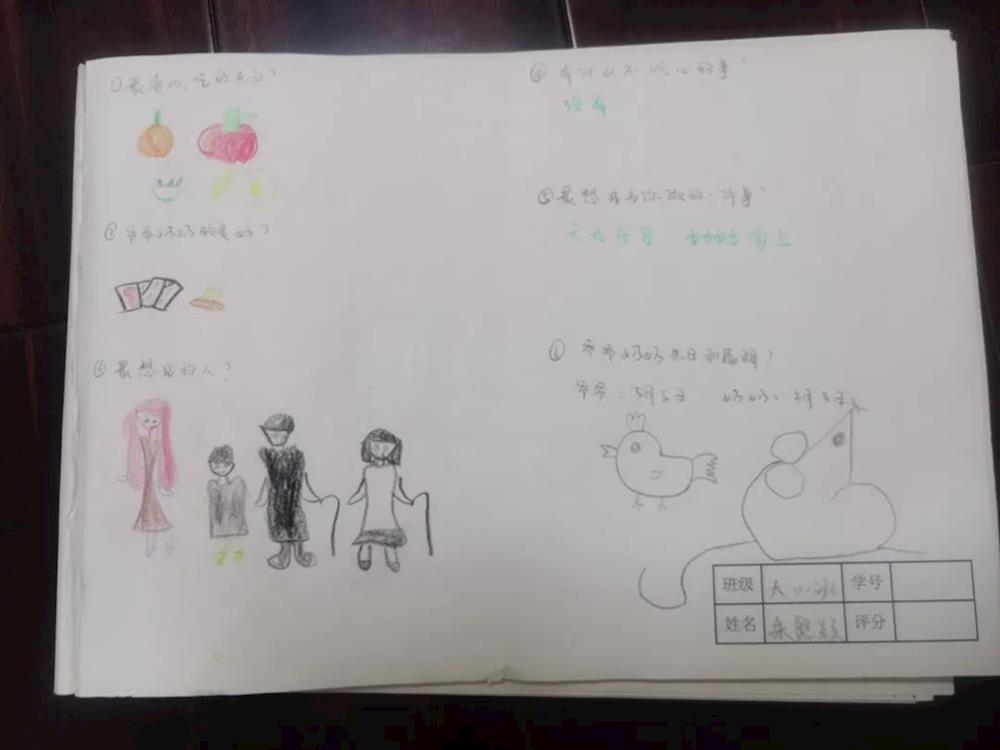 ①最喜欢吃的东西?
②爷爷奶奶的爱好?
③最想见的人?
④有什么不顺心的事?
没有
⑤最想我为你做的一件事?
天天学习 好好向上
⑥爷爷奶奶生日和属相?
爷爷:5月5日 奶奶:3月3日
班级 大 班 学号
姓名 朱 评分